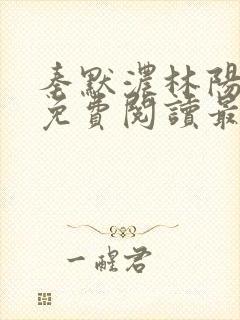 秦默濃林陽
免費閱讀最
一醒君